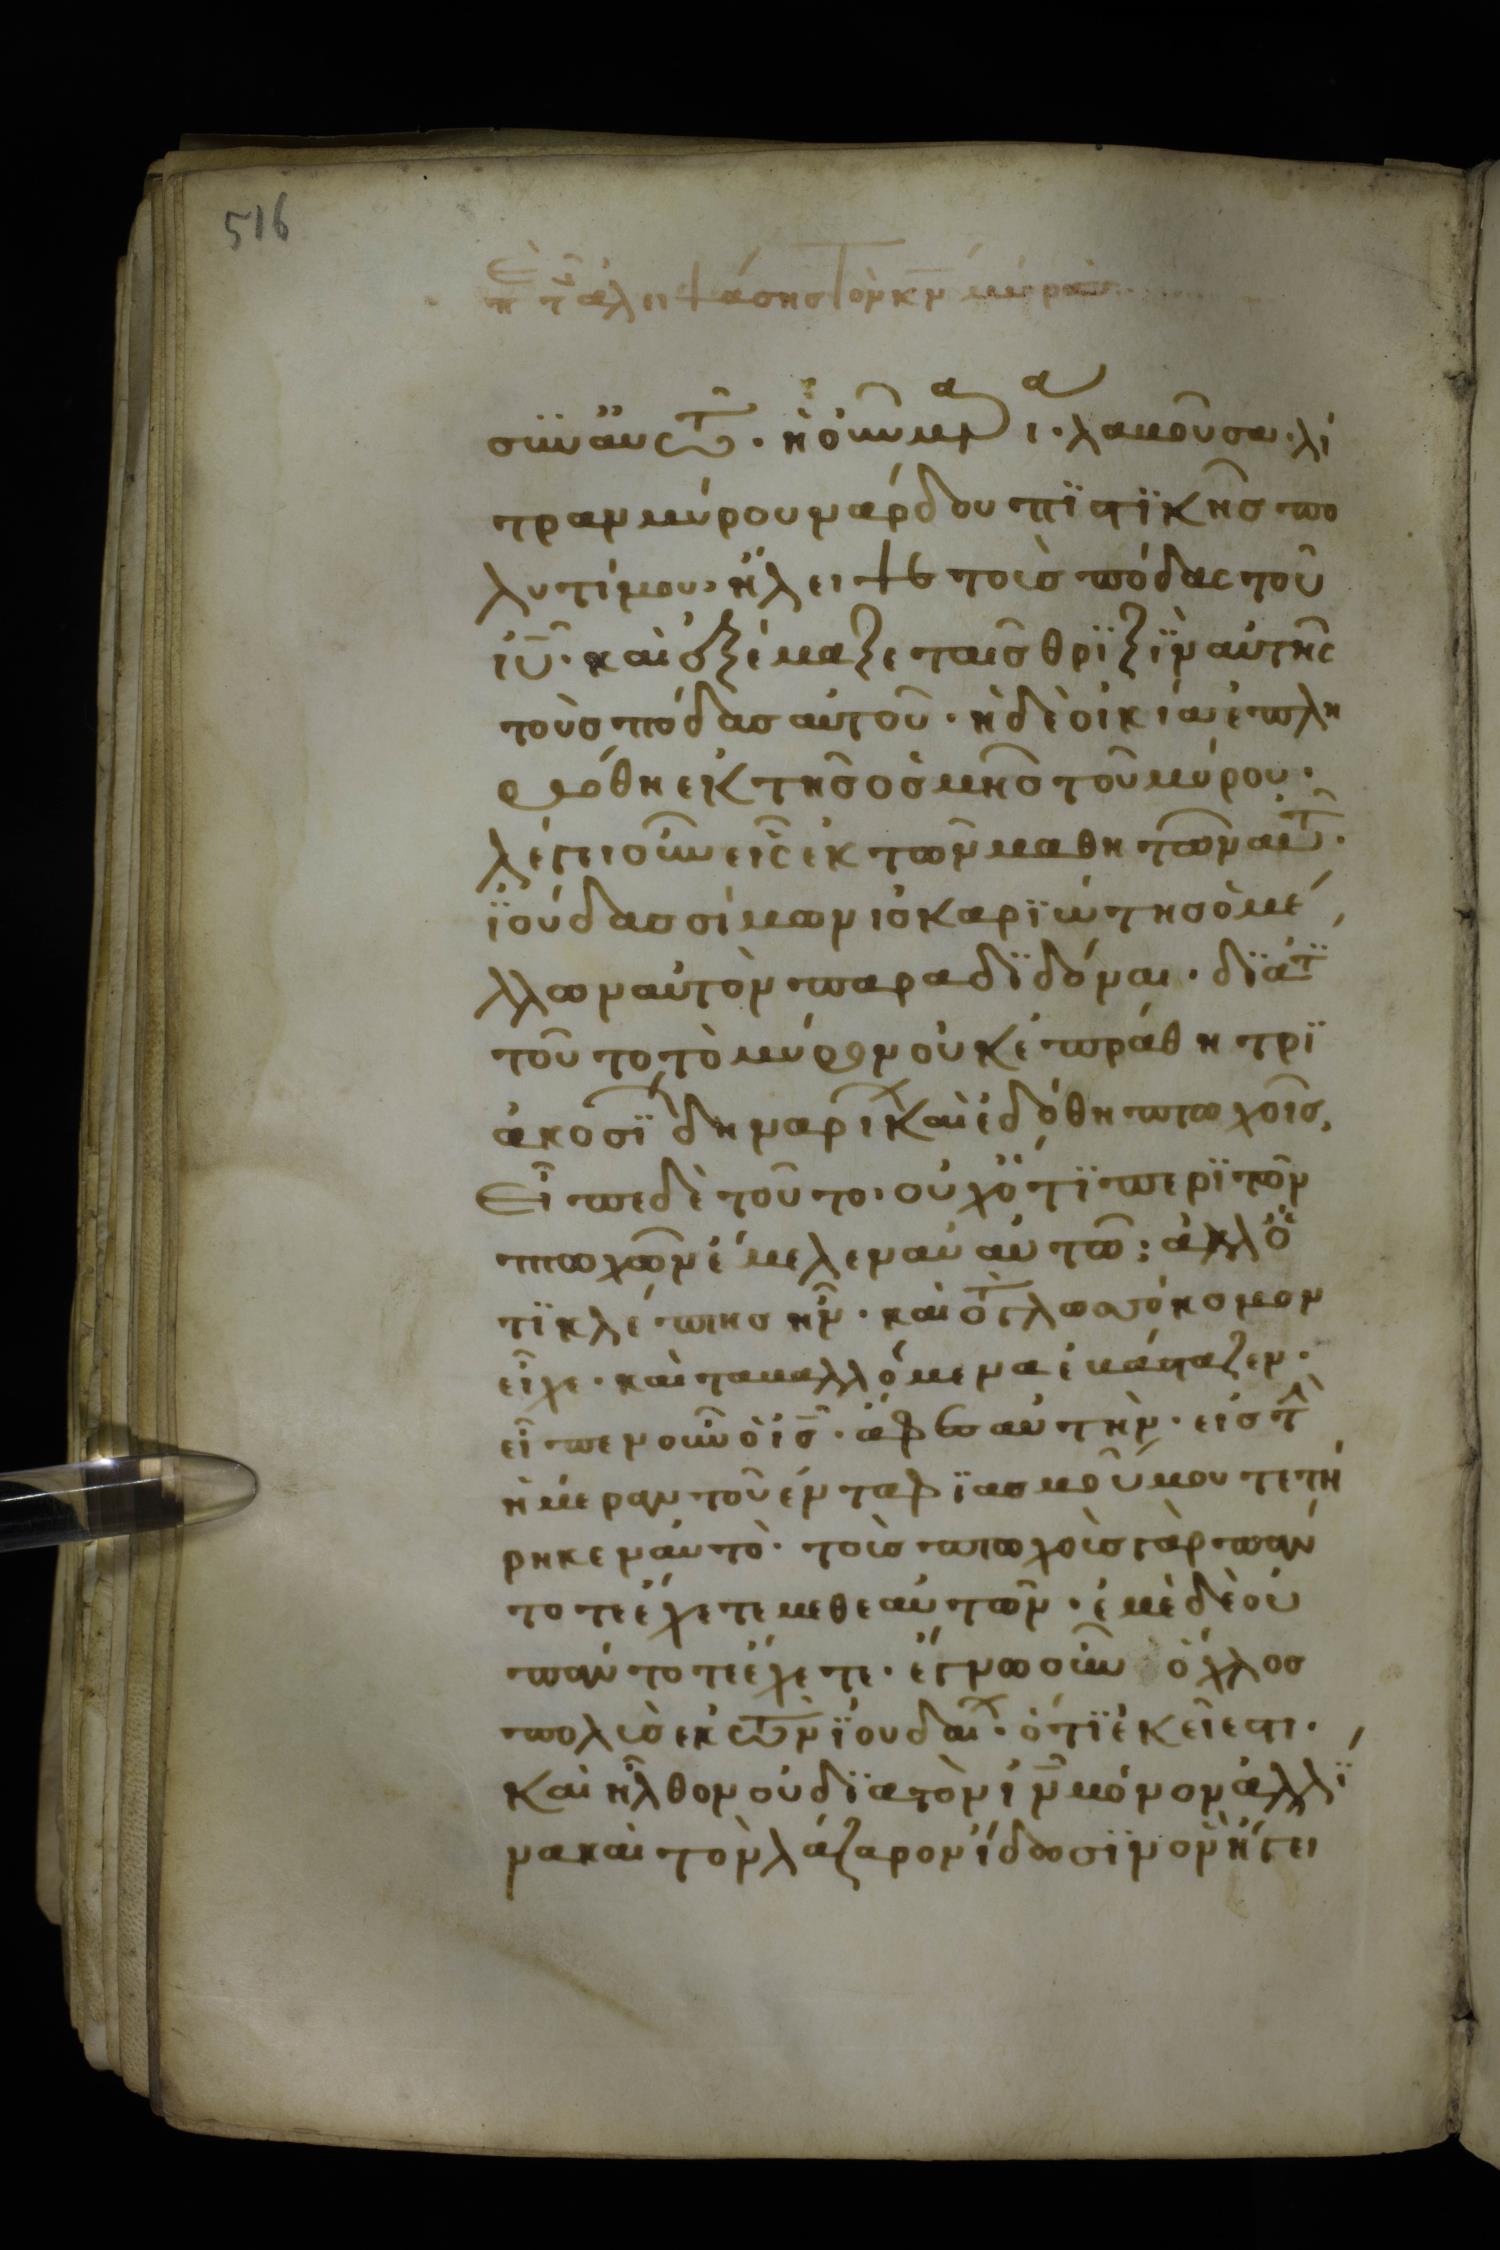 516
π τ ἀλειψάσης τὸν κν μύρω
συν αυτω. ἡ οῦν μαρια. λαβοῦσα. λί
τραν μύρου νάρδου πϊστϊκῆς πο
λυτίμου, ἤλειψε τοὺσ πόδας τοῦ
ιυ. καὶ ἐξέμαξε ταῖσ θριξϊν αὐτῆς
τοὺσ πόδασ αὐτοῦ. ἡ δὲ οἰκία ἐπλη
ρώθη ἐκ τῆσ ὀσμῆσ τοῦ μύρου.
λέγει οῦν εἷς ἐκ τῶν μαθητῶν αυτ.
ϊούδασ σίμων ισκαρϊώτησ ὁ μέ
λλων αὐτὸν παραδϊδόναι. δϊατϊ
τοῦτο τὸ μύρον οὐκ ἐπράθη τρϊ
ἀκοσϊ δηναρι καὶ ἐδόθη πτωχοῖσ,
Εἶπε δὲ τοῦτο. οὐχ ὅτϊ περϊ τῶν
πτωχῶν ἔμελεν αὐτῶ: ἀλλ ὅ
τϊ κλέπτησ ἦν. καὶ τ γλωσσόκομον
εἶχε. καὶ τὰ βαλλόμενα ἐβάσταζεν.
εἶπεν οῦν ὁ ις. ἄφες αὐτὴν. εἰσ τ
ἡμέραν τοῦ ἐνταφϊασμοῦ μου τετή
ρηκεν αὐτὸ. τοὺσ πτωχοὺσ γὰρ πάν
τοτε ἔχετε μεθ ἑαυτῶν. ἐμὲ δὲ οὐ
πάντοτε ἔχετε. ἔγνω οῦν ὄχλοσ
πολὺσ ἐκ των ϊουδαι. ὅτϊ ἐκεῖ ἐστι.
καὶ ἦλθον οὐ δϊα τὸν ιν μόνον ἀλλ ϊ
να καὶ τὸν λάζαρον ἴδωσϊν ὃν ἤγει